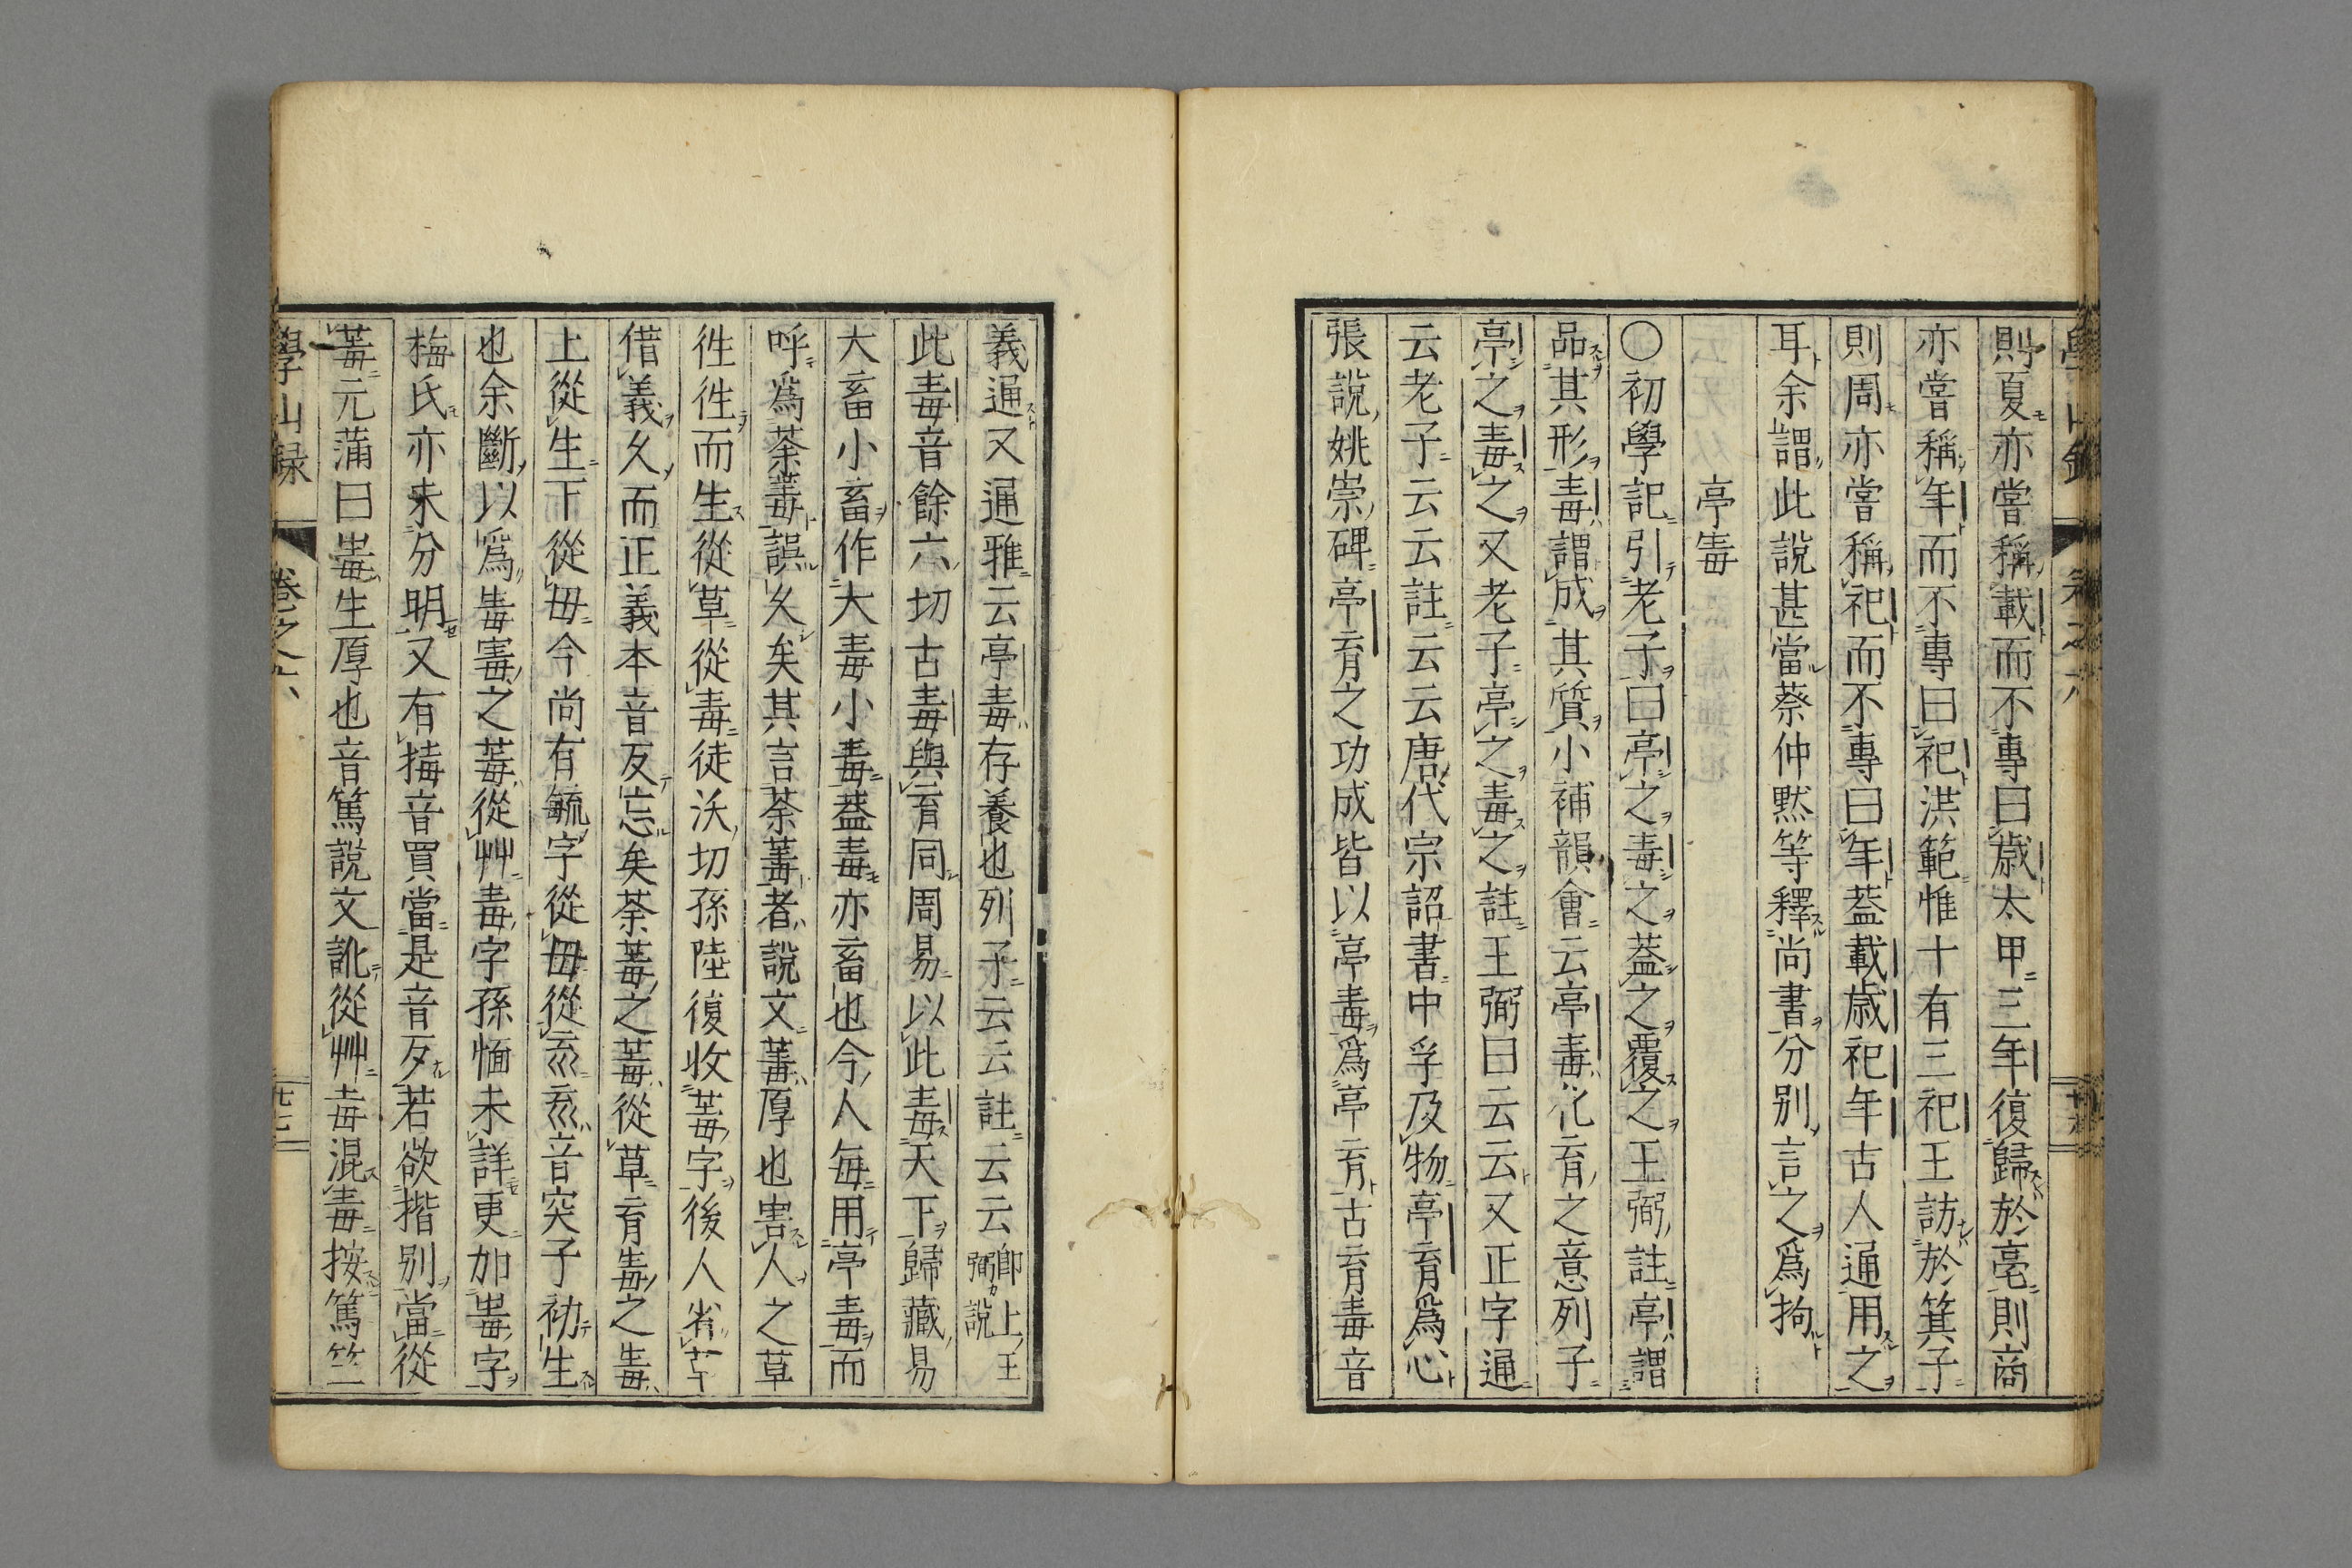 則夏亦嘗稱載而不專曰歳太甲三年復歸於亳則商
亦嘗稱年而不專曰祀洪範惟十有三祀王訪於箕子
則周亦嘗稱祀而不專曰年葢載歳祀年古人通用之
耳余謂此說甚當蔡仲黙等釋尚書分別言之爲拘
亭毒
〇初學記引老子曰亭之毒之葢之覆之王弼註亭謂
品其形毒謂成其質小補韻會云亭毒化育之意列子
亭之毒之又老子亭之毒之註王弼曰云云又正字通
云老子云云註云云唐代宗詔書中孚及物亭育爲心
張說姚崇碑亭育之功成皆以亭毒爲亭育古育毒音
義通又通雅云亭毒存養也列子云云註云云卽上王弼說
此毒音餘六切古毒與育同周易以此毒天下歸藏易
大畜小畜作大毒小毒葢毒亦畜也今人每用亭毒而
呼爲荼毒誤久矣其言荼毒者說文毒厚也害人之草
徃徃而生從草從毒徒沃切孫陸復收字後人省
借義久而正義本音反忘矣荼之從草育之
上從生下從毋今尚有毓字從毋從㐬㐬音突子初生
也余斷以爲之從艸毒字孫愐未詳更加字
梅氏亦未分明又有音買當是音歹若欲揩別當從
元蒲曰生厚也音篤說文訛從艸毒混毒按篤竺
學山録
卷之六